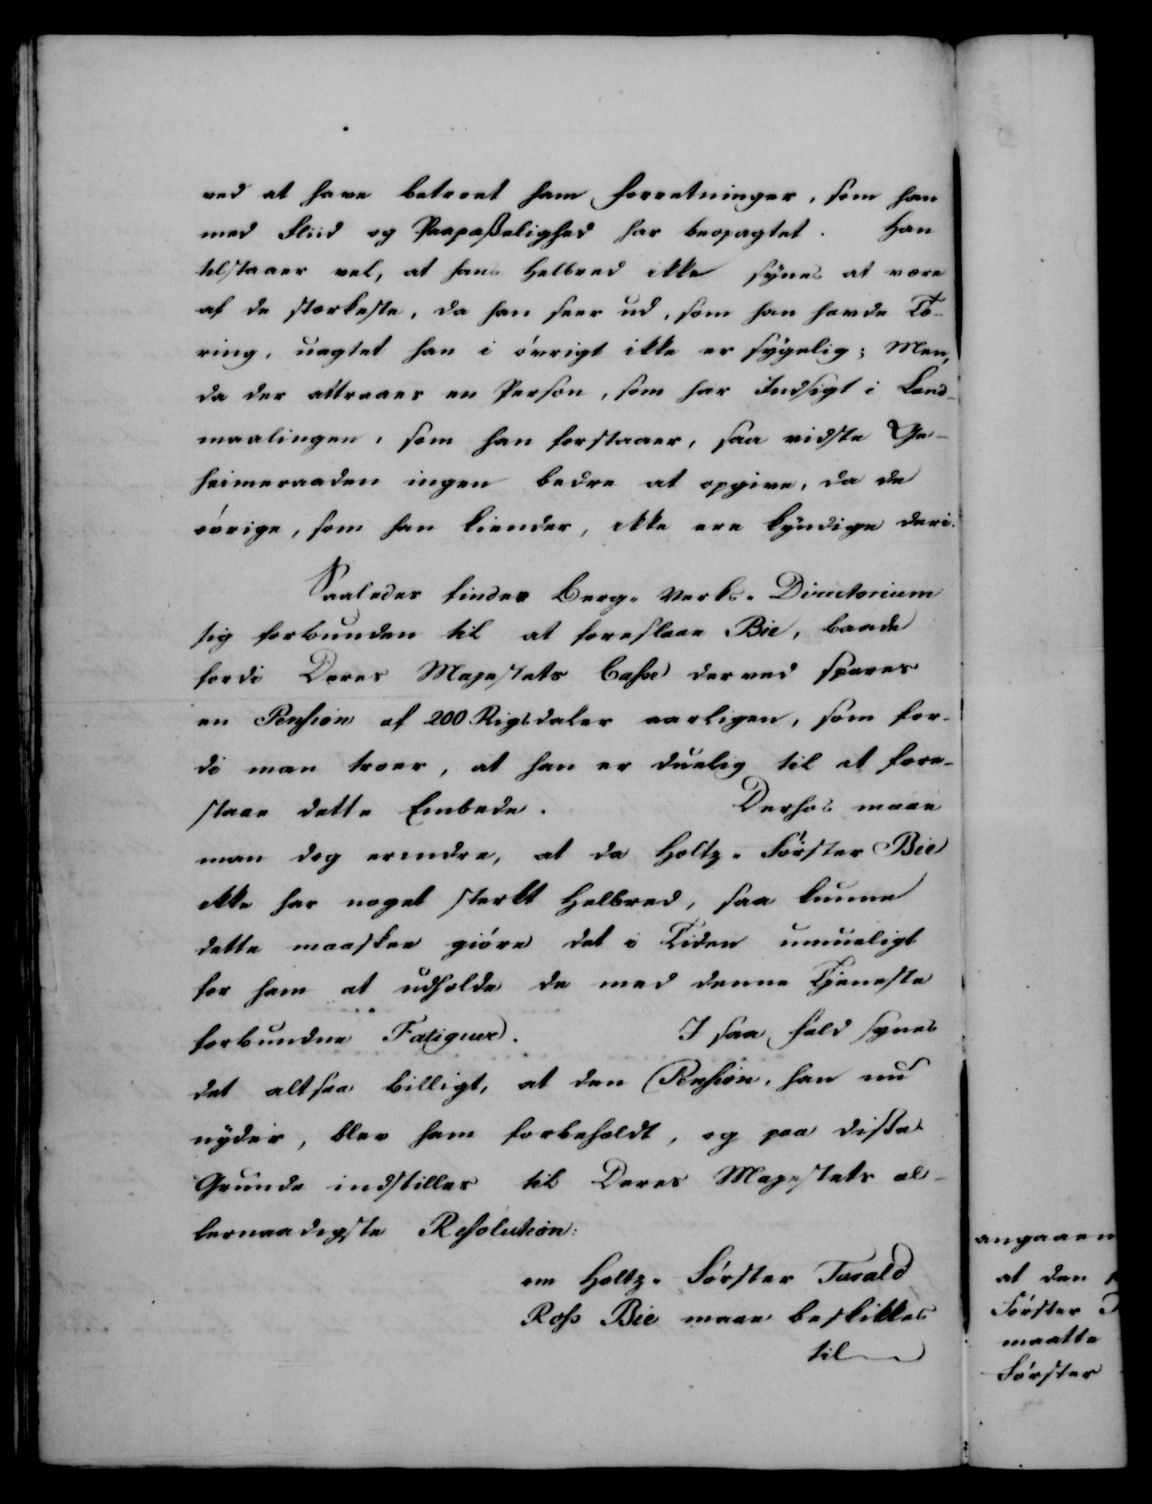 ved at have betroet ham forretninger, som han
med Fliid og Paapaßelighed har beopagtet. Han
tilstaaer vel, at hans Helbred ikke synes at være
af de stærkeste, da han seer ud, som han havde Tæ-
ring, uagtet han i övrigt ikke er sygelig; Men,
da der attraaes en Person, som har Indsigt i Land-
maalingen, som han forstaaer, saa vidste Ge-
heimeraaden ingen bedre at opgive, da de
övrige, som han kiender, ikke ere kyndige deri.
Saaledes finder Berg-Verks-Directorium
sig forbunden til at foreslaae Bie, baade
fordi Deres Majestets Casse derved spares
en Pension af 200 Rigsdaler aarligen, som for-
di man troer, at han er duelig til at fore-
staae dette Embede. Derhos maae
man dog erindre, at da Holtz-Förster Bie
ikke har noget sterkt Helbred, saa kunne
dette maaskee giöre det i Tiden umueligt
for ham at udholde de med denne Tjeneste
forbundne Fatiguer. I saa fald synes
det altsaa billigt, at den Pension, han nu
nyder, blev ham forbeholdt, og paa disse
Grunde indstilles til Deres Majestets al-
lernaadigste Resolution:
om Holtz-Förster Tarald
Ross Bie maae beskikkes
til
angaaen
at den
Förster
maatte
Förster